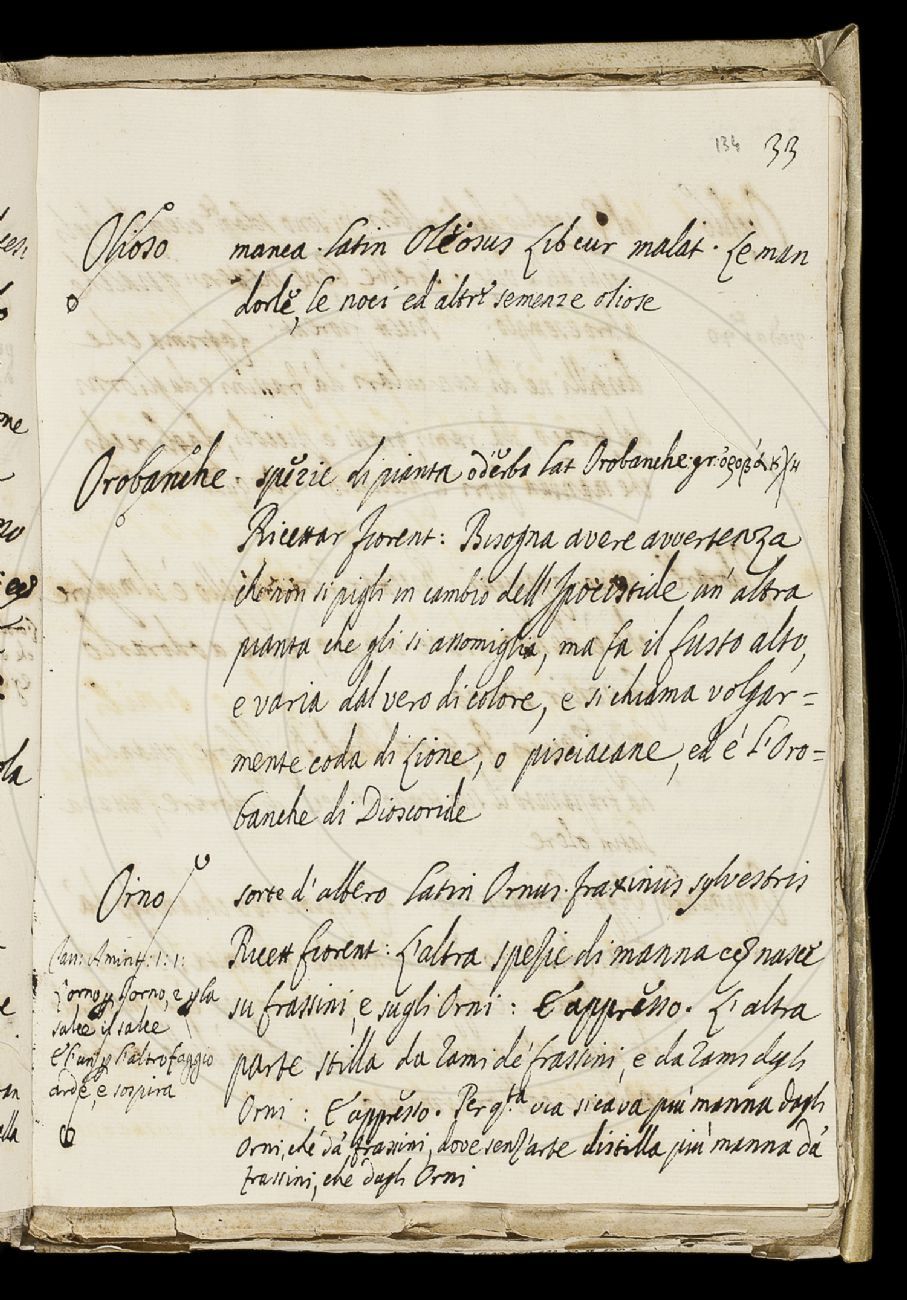 134 33
Olioso manca. Latin Oleosus Lib cur malat. Le man
dorle, le noci ed altre semenze oliose
Orobanche. spezie di pianta o d'erba Lat Orobanche. gr. ὀροβάγχη
Ricettar fiorent: Bisogna avere avvertenza
che non si pigli in cambio dell'Ipocistide un'altra
pianta che gli si assomiglia, ma fa il fusto alto,
e varia dal vero di colore, e si chiama volgar=
mente coda di Lione, o pisciacane, ed é l'Oro=
banche di Dioscoride
Orno sorte d'albero Latin Ornus. fraxinus sylvestris
Ricett fiorent: L'altra spesie di manna che nasce
su frassini, e sugli Orni: E appresso. L'altra
parte stilla da rami de' frassini, e da rami degli
Orni: E appresso. Per qta. via si cava piú manna dagli
Orni, che dá frassini, dove senz'arte distilla piú manna dá
frassini, che dagli Orni
Amint: 1: 1:
L'orno p l'orno, e p la
salce il salce
E l'un p l'altro faggio
arde, e sospira